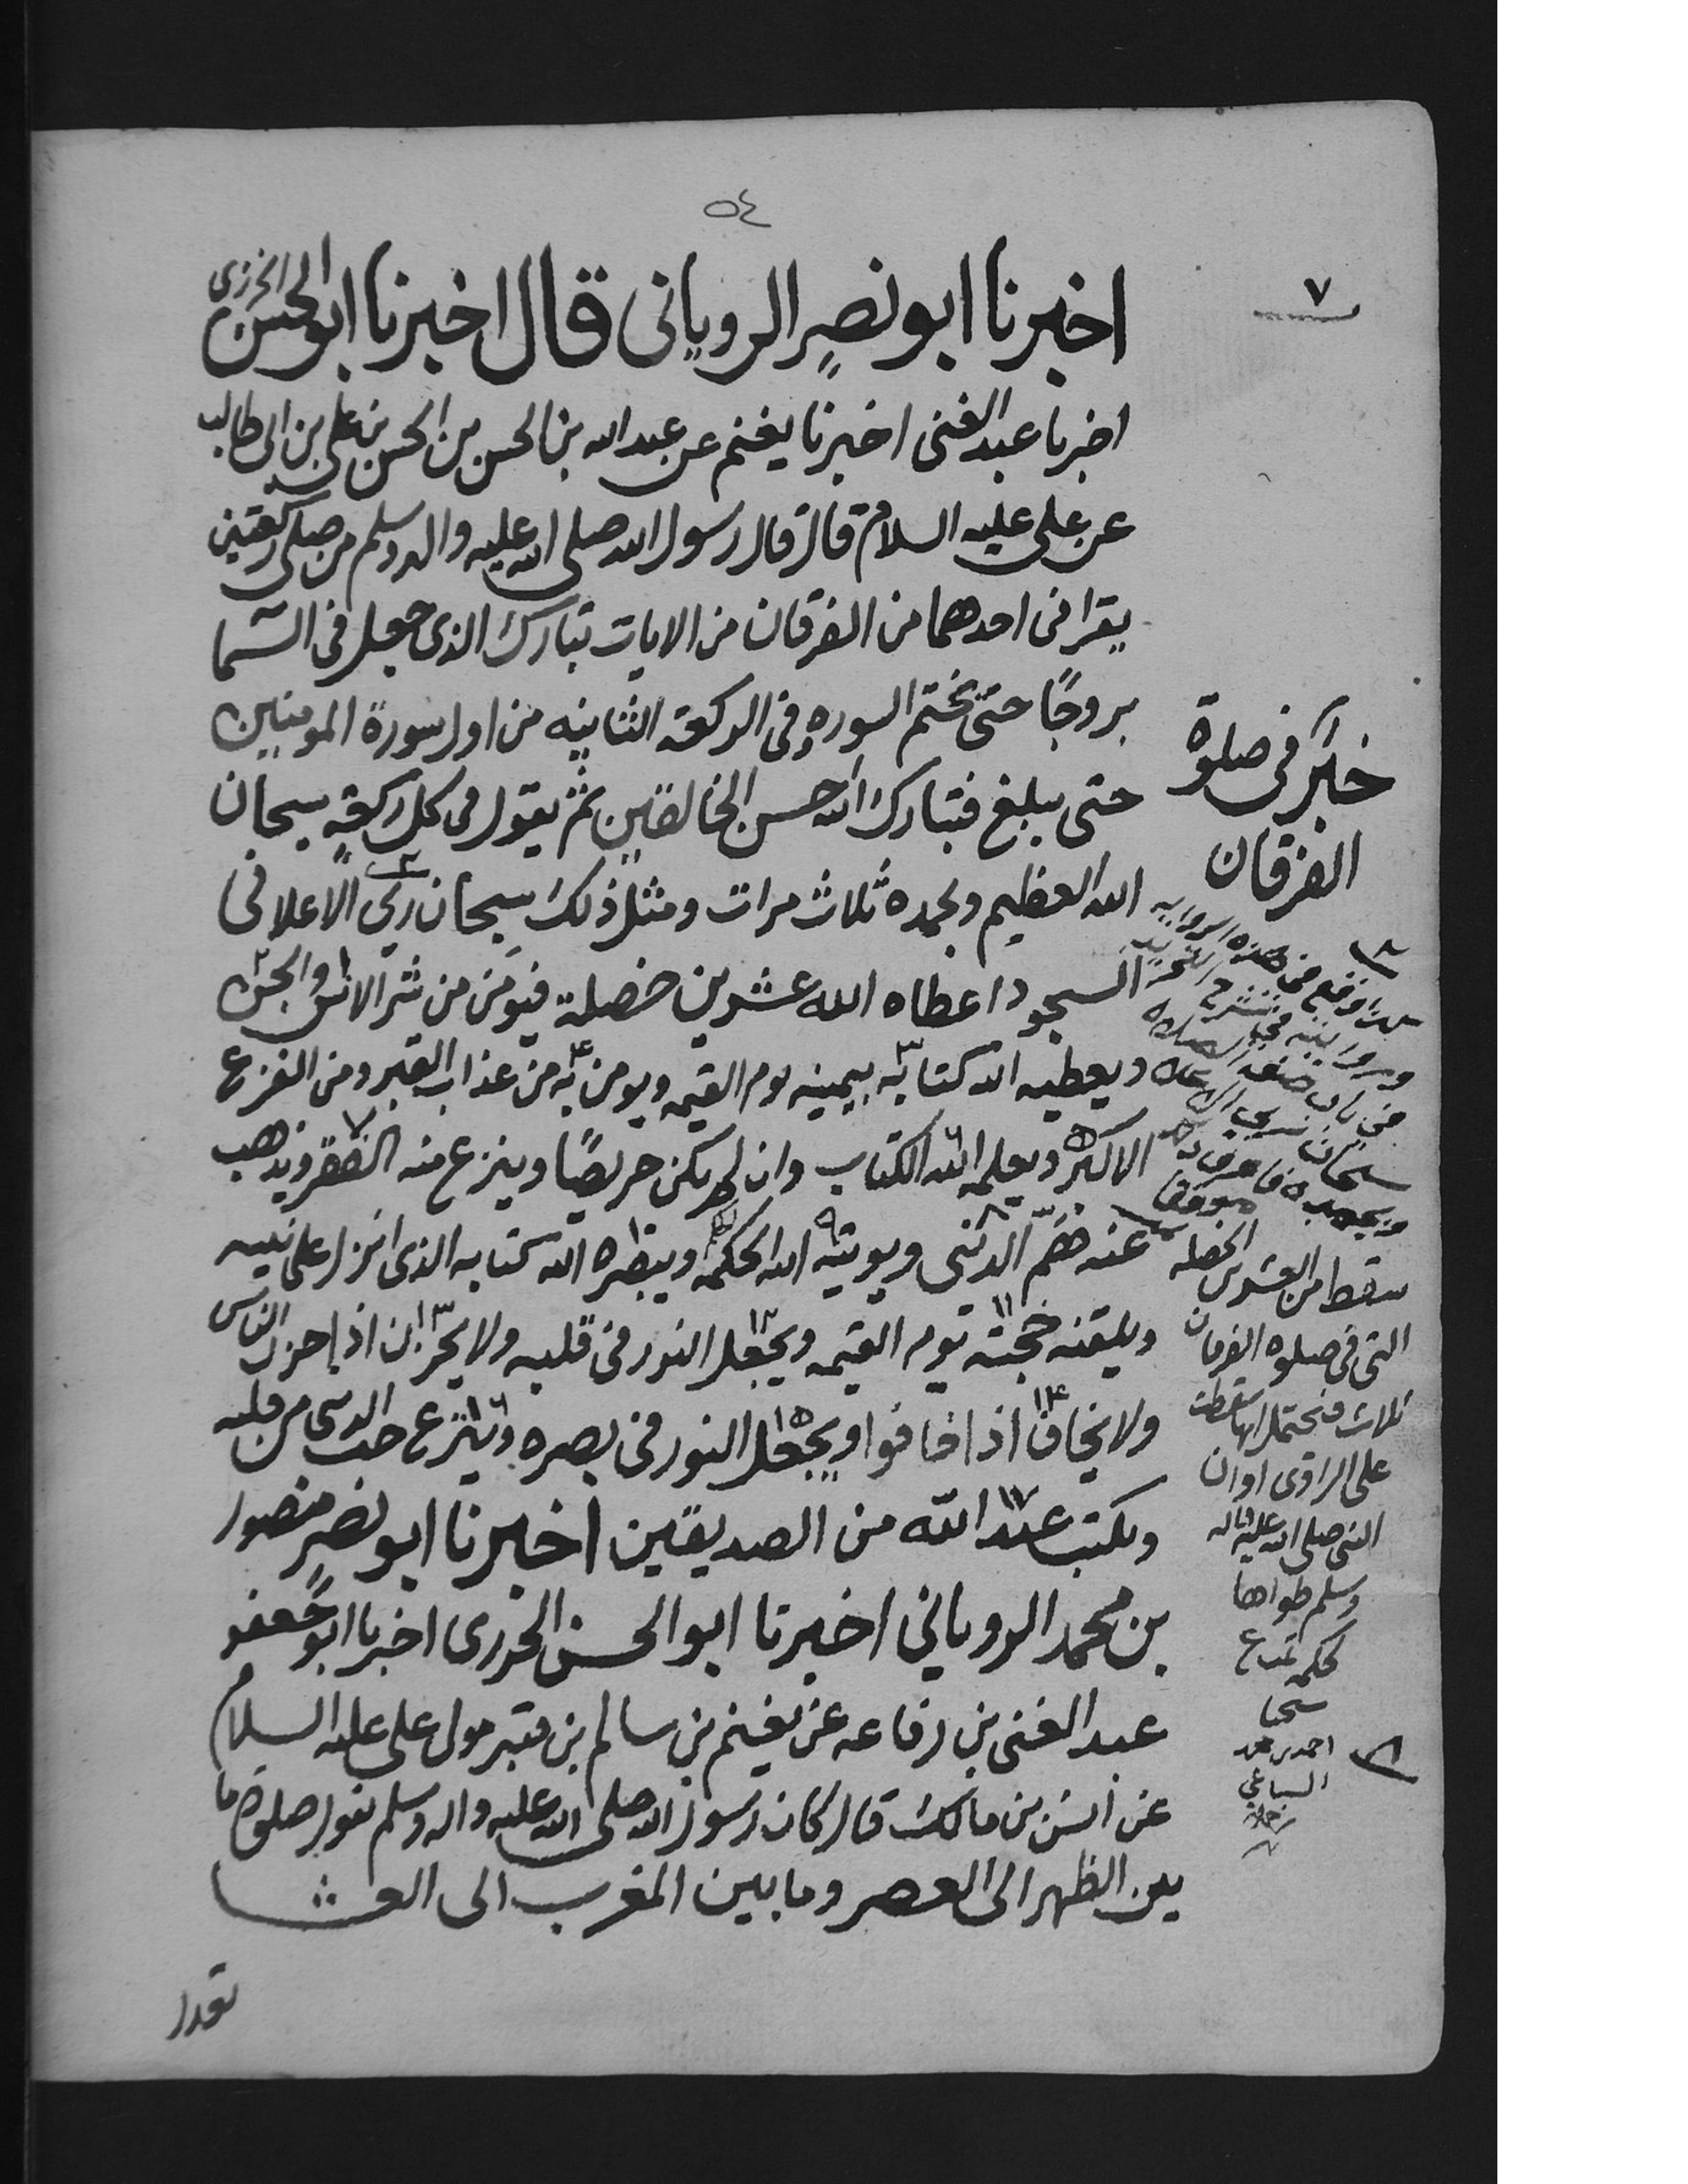 ٥٤
٧
اخبرنا ابو نصر الروياني قال اخبرنا ابو الحسن الخزرى
اخبرنا عبد الغنى اخبرنا يغنم عن عبد الله بن الحسن بن الحسن بن على بن ابى طالب
عن على عليه السلام قال قال رسول الله صلى الله عليه واله وسلم من صلى ركعتين
يقرا فى احدهما من الفرقان من الايات تبارك الذى جعل فى السما
بروجًا حتى يختم السوره وفى الركعة الثانيه من اول سورة المومنين
حتى يبلغ فتبارك الله احسن الخالقين ثم يقول فى كل ركعةٍ سبحان
الله العظيم وبحمده ثلاث مرات ومثل ذلك سبحان ربي الاعلا فى
السجود اعطاه الله عشرين خصلة فيومن من شر الانس والجن
ويعطيه الله كتابه بيمينه يوم القيمه ويومن به من عذاب القبر ومن الفزع
الاكبر ويعلمه الله الكتاب وان لم يكن حريصًا وينزع منه الفقر ويذهب
عنه همّ الدنيى ويوتيه الله الحكمه ويبصره الله كتابه الذى انزل على نبيه
ويلقنه حجته يوم القيمه ويجعل النور فى قلبه ولا يحزن اذا حزن الناس
ولا يخاف اذا خافوا ويجعل النور فى بصره وينزع حب الدنيى من قلبه
ويكتب عند الله من الصديقين اخبرنا ابو نصر منصور
بن محمد الروياني اخبرنا ابو الحسن الخزرى اخبرنا ابو جعفر
عبد الغنى بن رفاعه عن يغنم بن سالم بن قنبر مولى على عليه السلام
عن انس بن مالك قال كان رسول الله صلى الله عليه واله وسلم يقول صلوة ما
بين الظهر الى العصر وما بين المغرب الى العشا
تعدل
خبر فى صلوة
الفرقان
فى هذه الروايه
سبحان ربي الاعلا
وبحمده فاعرف ذلك
موفقا
سقط من العشرين الخصله
التى فى صلوه الفرقان
ثلاث فيحتمل انها سقطت
على الراوى او ان
النبى صلى الله عليه واله
وسلم طواها
لحكمه
احمد بن محمد
السياغي